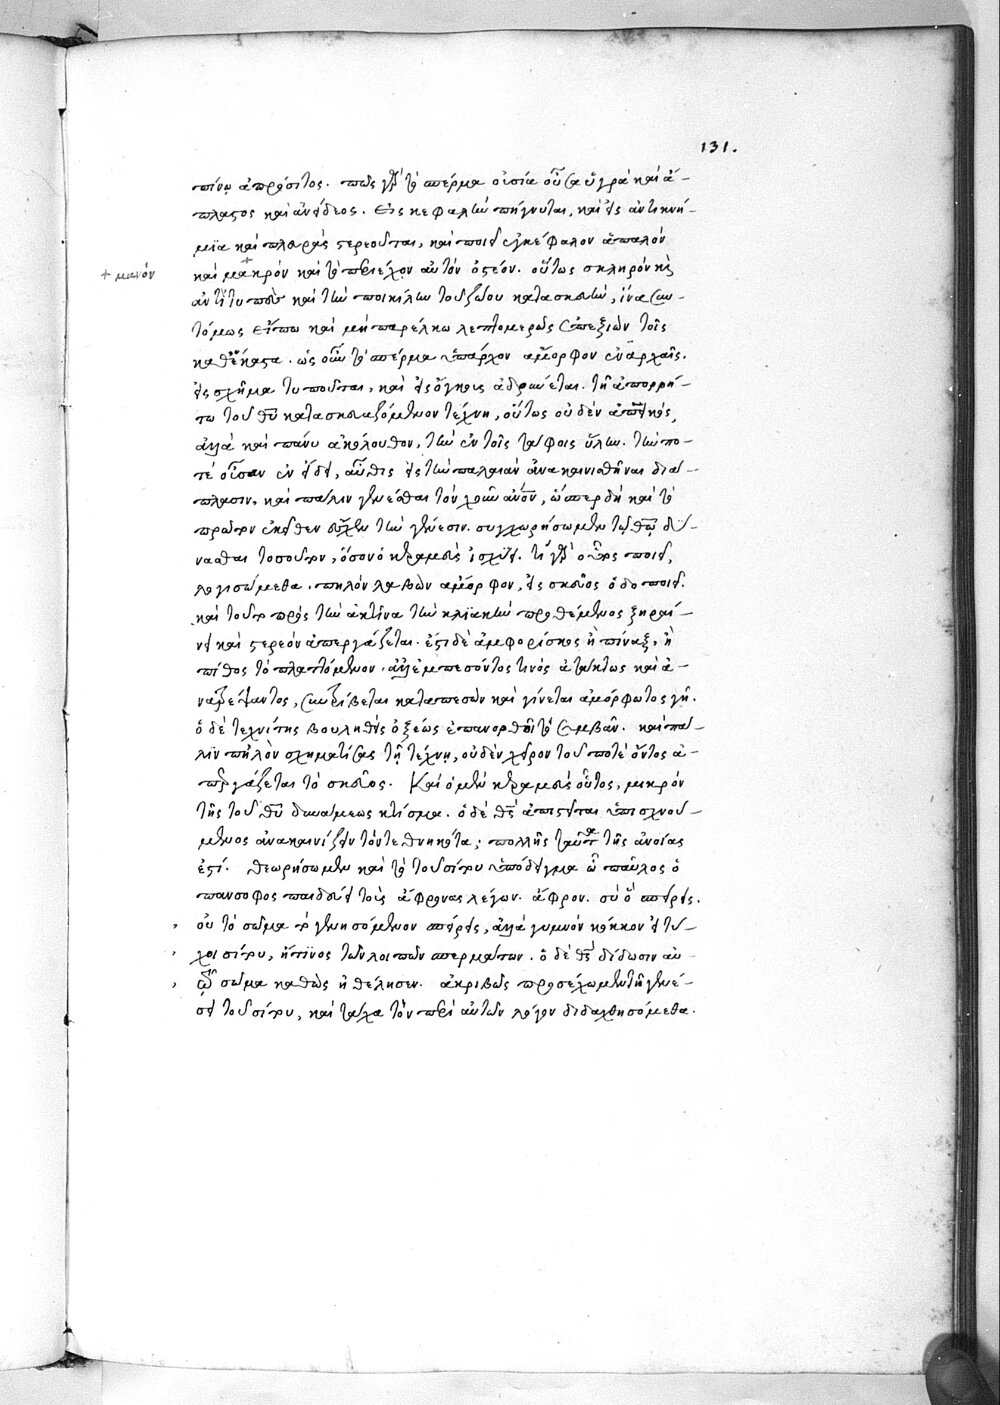 131.
πίνῳ ἀπρόσιτος. πῶς γὰρ τὸ σπέρμα οὐσία οὖσα ὑγρὰ καὶ ἄ-
πλαστος καὶ ἀνείδεος. εἰς κεφαλὴν πήγνυται, καὶ εἰς ἀντικνή-
μια καὶ πλευρὰς στερεοῦται, καὶ ποιεῖ ἐγκέφαλον ἁπαλὸν
+ μανόν
καὶ μακρὸν καὶ τὸ περιέχον αὐτὸν ὀστέον. οὕτως σκληρὸν καὶ
ἀντίτυπον καὶ τὴν ποικίλην τοῦ ζώου κατασκευήν, ἵνα συν-
τόμως εἴπω καὶ μὴ παρέλκω λεπτομερῶς ἐπεξιὼν τοῖς
καθέκαστα. ὡς οὖν τὸ σπέρμα ὑπάρχον ἄμορφον ἐν ἀρχαῖς.
εἰς σχῆμα τυποῦται, καὶ εἰς ὄγκους ἁδρύνεται. τῇ ἀπορρή-
τῳ τοῦ θυ κατασκευαζόμενον τέχνῃ, οὕτως οὐδὲν ἀπεικὸς,
ἀλλὰ καὶ πάνυ ἀκόλουθον, τὴν ἐν τοῖς τάφοις ὕλην. τήν πο-
τε οὖσαν ἐν εἴδει, αὖθις εἰς τὴν παλαιὰν ἀνακαινισθῆναι διά-
πλασιν, καὶ πάλιν γενέσθαι τὸν χοῦν ἄνον, ὥσπερ δὴ καὶ τὸ
πρῶτον ἐκεῖθεν ἔσχεν τὴν γένεσιν. συγχωρήσωμεν τῷ θῶ δύ-
νασθαι τοσοῦτον, ὅσον ὁ κεραμεὺς ἰσχύει. τί γὰρ οὗτος ποιεῖ,
λογισώμεθα. πηλὸν λαβὼν ἄμορφον, εἰς σκεῦος ὁδοποιεῖ.
καὶ τοῦτο πρὸς τὴν ἀκτῖνα τὴν ἡλιακὴν προθέμενος ξηραί-
νει καὶ στερεὸν ἀπεργάζεται. ἔστι δὲ ἀμφορίσκος ἢ πίναξ, ἢ
πίθος τὸ πλαττόμενον. ἀλλ' ἐμπεσόντος τινὸς ἀτάκτως καὶ ἀ-
νατρέψαντος, συντρίβεται καταπεσὼν καὶ γίνεται ἀμόρφωτος γῆ.
ὁ δὲ τεχνίτης βουληθεὶς ὀξέως ἐπανορθοῖ τὸ συμβάν. καὶ πά-
λιν πηλὸν σχηματίσας τῇ τέχνῃ, οὐδὲν χεῖρον τοῦ ποτὲ ὄντος ἀ-
περγάζεται τὸ σκεῦος. Καὶ ὁ μὲν κεραμεὺς οὗτος, μικρὸν
τῆς τοῦ θυ δυνάμεως κτίσμα. ὁ δὲ θς ἀπιστεῖται ὑπισχνού-
μενος ἀνακαινίζειν τὸν τεθνηκότα; πολλῆς ταῦτα τῆς ἀνοίας
ἐστί. θεωρήσωμεν καὶ τὸ τοῦ σίτου ὑπόδειγμα ᾧ παῦλος ὁ
πάνσοφος παιδεύει τοὺς ἄφρονας λέγων. ἄφρον. σὺ ὃ σπείρεις.
οὐ τὸ σῶμα τὸ γενησόμενον σπείρεις, ἀλλὰ γυμνὸν κόκκον εἰ τύ-
χοι σίτου, ἤ τινος τῶν λοιπῶν σπερμάτων. ὁ δὲ θς δίδωσιν αὐ-
τῷ σῶμα καθὼς ἠθέλησεν. ἀκριβῶς προσέχωμεν τῇ γενέ-
σει τοῦ σίτου, καὶ τάχα τὸν περὶ αὐτῶν λόγον διδαχθησόμεθα.